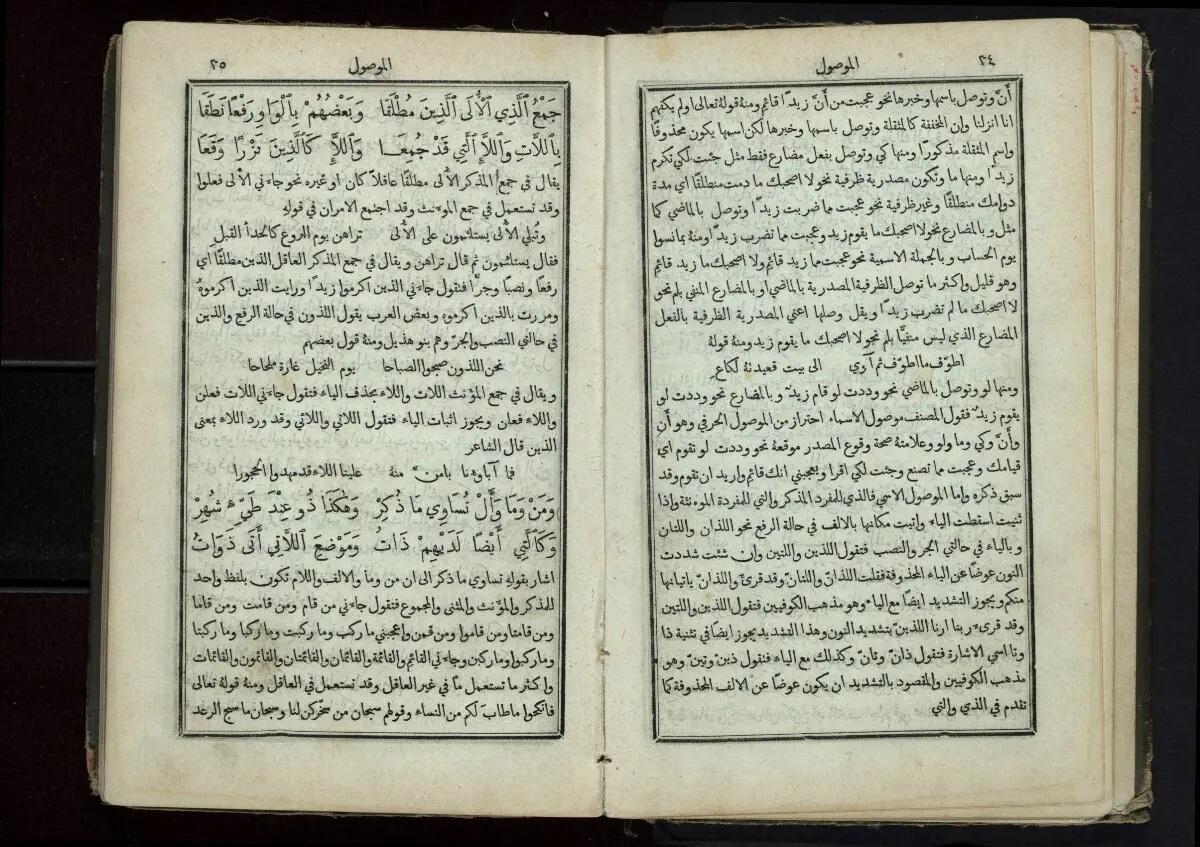 ٢٤
الموصول
أنَّ وتوصل باسمها وخبرها نحو عجبت من أنَّ زيدًا قائم ومنهُ قولهُ تعالى اولم يكفهم
انا انزلنا وإن المخففة كالمثقلة وتوصل باسمها وخبرها لكن اسمها يكون محذوفًا
واسم المثقلة مذكورًا ومنها كي وتوصل بفعل مضارع فقط مثل جئت لكي تكرم
زيدًا ومنها ما وتكون مصدرية ظرفية نحو لا اصحبك ما دمت منطلقًا اي مدة
دوامك منطلقًا وغير ظرفية نحو عجبت مما ضربت زيدًا وتوصل بالماضي كما
مثل وبالمضارع نحو لا اصحبك ما يقوم زيد وعجبت مما تضرب زيدًا ومنهُ بما نسوا
يوم الحساب وبالجملة الاسمية نحو عجبت مما زيد قائم ولا اصحبك ما زيد قائم
وهو قليل واكثر ما توصل الظرفية المصدرية بالماضي او بالمضارع المنفي بلم نحو
لا اصحبك ما لم تضرب زيدًا ويقل وصلها اعني المصدرية الظرفية بالفعل
المضارع الذي ليس منفيًّا بلم نحو لا اصحبك ما يقوم زيد ومنهُ قولهُ
اطوّف ما اطوّف ثم آوي الى بيت قعيدتهُ لكاع
ومنها لو وتوصل بالماضي نحو وددت لو قام زيدٌ وبالمضارع نحو وددت لو
يقوم زيدٌ فقول المصنف موصول الاسماء احتراز من الموصول الحرفي وهو أن
وأنَّ وكي وما ولو وعلامتهُ صحة وقوع المصدر موقعهُ نحو وددت لو تقوم اي
قيامك وعجبت مما تصنع وجئت لكي اقرا ويعجبني انك قائم واريد ان تقوم وقد
سبق ذكره واما الموصول الاسمي فالذي للمفرد المذكر والتي للمفردة الموءنثة واذا
ثنيت اسقطت الياء واتيت مكانها بالالف في حالة الرفع نحو اللذان واللتان
وبالياء في حالتي الجر والنصب فتقول اللذين واللتين وان شئت شددت
النون عوضًا عن الياء المحذوفة فقلت اللذانّ واللتانّ وقد قرئَ واللذانّ ياتيانها
منكم ويجوز التشديد ايضًا مع الياء وهو مذهب الكوفيين فتقول اللذينّ واللتينّ
وقد قرىء ربنا ارنا اللذينّ بتشديد النون وهذا التشديد يجوز ايضًا في تثنية ذا
وتا اسمي الاشارة فتقول ذانّ وتانّ وكذلك مع الياء فتقول ذينّ وتينّ وهو
مذهب الكوفيين والمقصود بالتشديد ان يكون عوضًا عن الالف المحذوفة كما
تقدم في الذي والتي
الموصول
٢٥
جَمْعُ ٱلَّذِي ٱلْأُلَى ٱلَّذِينَ مُطْلَقَا وَبَعْضُهُمْ بِٱلْوَاوِ رَفْعًا نَطَقَا
بِٱللَّاتِ وَٱللَّا ٱلَّتِي قَدْ جُمِعَا وَٱللَّا كَٱلَّذِينَ نَزْرًا وَقَعَا
يقال في جمع المذكر الأُلى مطلقًا عاقلاً كان او غيره نحو جاءَني الأُلى فعلوا
وقد تستعمل في جمع الموءنث وقد اجتمع الامران في قولهِ
وتُبلي الأُلى يستلئمون على الأُلى تراهن يوم الروع كالحدأ القبل
فقال يستلئمون ثم قال تراهن ويقال في جمع المذكر العاقل الذين مطلقًا اي
رفعًا ونصبًا وجرًّا فتقول جاءَني الذين اكرموا زيدًا ورايت الذين اكرموهُ
ومررت بالذين اكرموه وبعض العرب يقول اللذون في حالة الرفع والذين
في حالتي النصب والجرّ وهم بنو هذيل ومنهُ قول بعضهم
نحن اللذون صبحوا الصباحا يوم النخيل غارة ملحاحا
ويقال في جمع المؤَنث اللات واللاء بحذف الياء فتقول جاءَني اللات فعلن
واللاء فعلن ويجوز اثبات الياء فتقول اللاتي واللائي وقد ورد اللاء بمعنى
الذين قال الشاعر
فما آباؤُنا بامنّ منهُ علينا اللاء قد مهدوا الحجورا
وَمَنْ وَمَا وَأَلْ تُسَاوِي مَا ذُكِرْ وَهٰكَذَا ذُو عِنْدَ طَيِّءٍ شُهِرْ
وَكَٱلَّتِي أَيْضًا لَدَيْهِمْ ذَاتُ وَمَوْضِعَ ٱللَّاتِي أَتَى ذَوَاتُ
اشار بقولهِ تساوي ما ذكر الى ان من وما والالف واللام تكون بلفظ واحد
للمذكر والمؤَنث والمثنى والمجموع فتقول جاءَني من قام ومن قامت ومن قاما
ومن قامتا ومن قاموا ومن قمن واعجبني ما ركب وما ركبت وما ركبا وما ركبتا
وما ركبوا وما ركبن وجاءَني القائم والقائمة والقائمان والقائمتان والقائمون والقائمات
واكثر ما تستعمل ما في غير العاقل وقد تستعمل في العاقل ومنهُ قولهُ تعالى
فانكحوا ما طاب لكم من النساء وقولهم سبحان من سخركن لنا وسبحان ما سبح الرعد